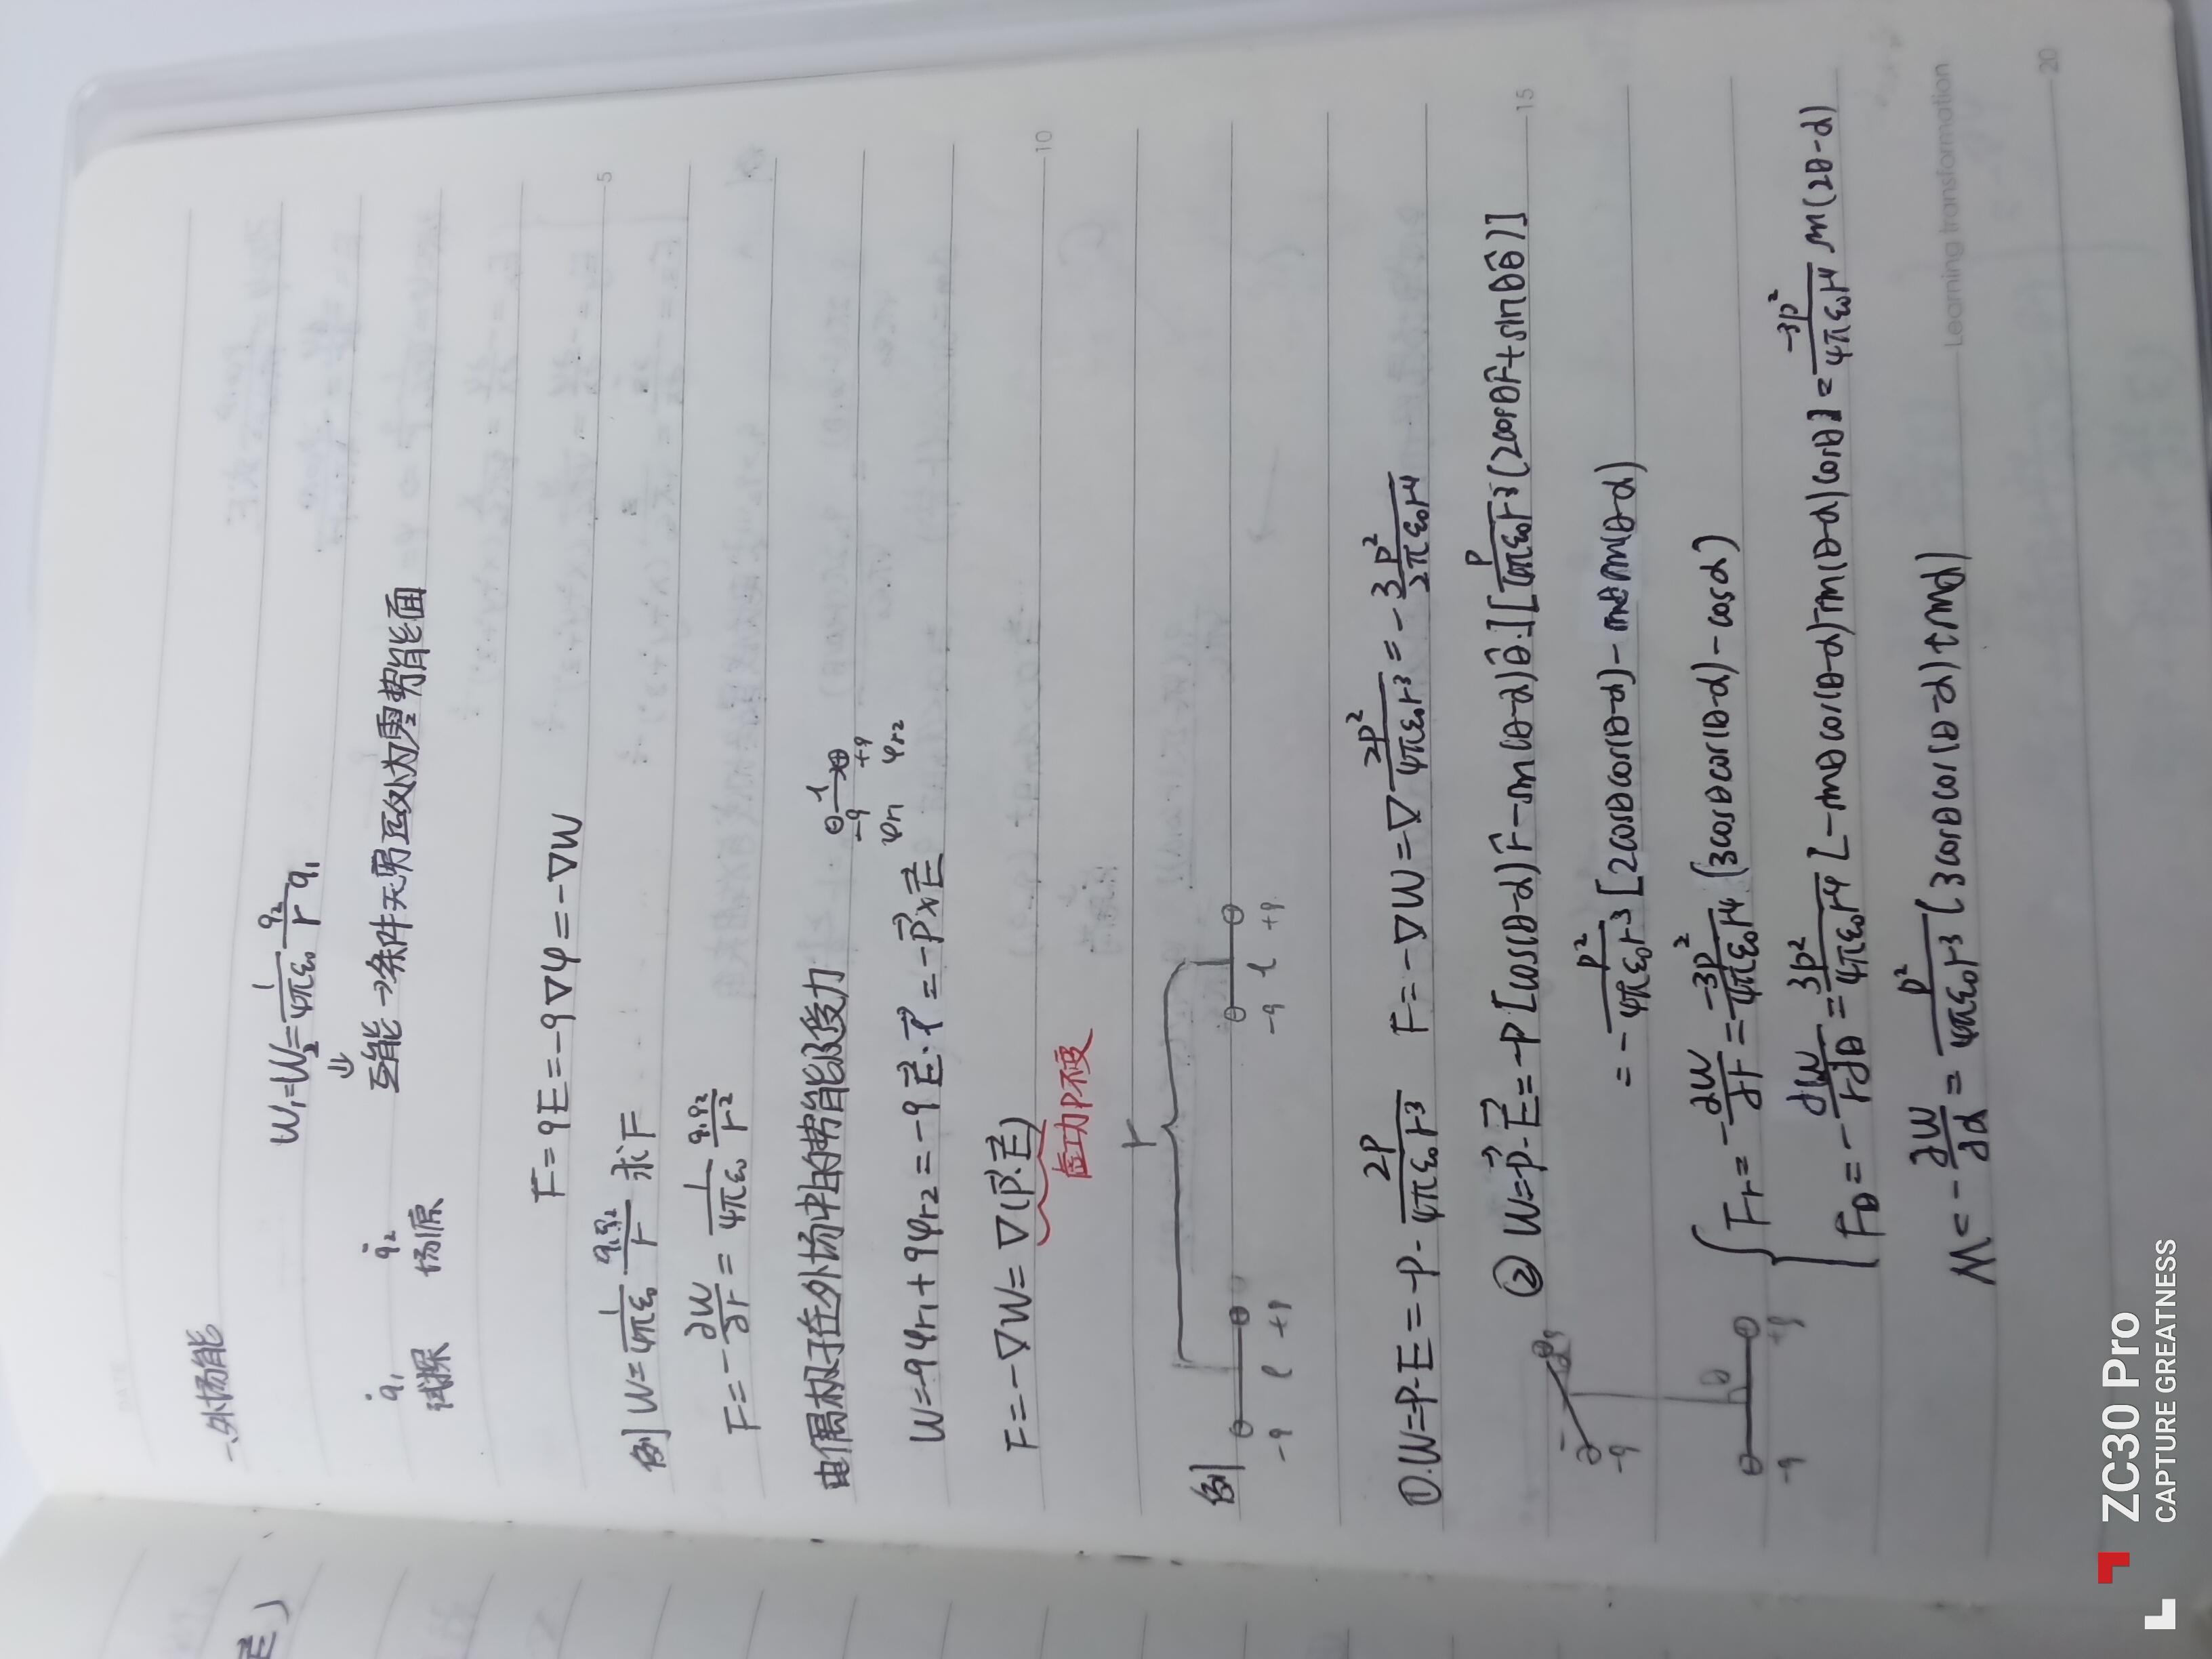 一、外场能
W₁=W₂=\frac{1}{4πε₀}\frac{q₂}{r}q₁
⇓
q₁ q₂ 互能→条件无穷远处为零势能面
试探 场源
F=qE=-q∇φ=-∇W
例 W=\frac{1}{4πε₀}\frac{q₁q₂}{r} 求F
F=-\frac{∂W}{∂r}=\frac{1}{4πε₀}\frac{q₁q₂}{r²}
电偶极子在外场中的势能及受力
⊖ l ⊕
-q +q
φr₁ φr₂
W=-qφr₁+qφr₂=-q\vec{E}·\vec{l}=-\vec{P}×\vec{E}
F=-∇W=∇(\vec{P}·\vec{E})
虚功P不变
r
例 ⊖ ⊕ ⊖ ⊕
-q l +q -q l +q
①.W=-P·E=-P·\frac{2P}{4πε₀r³} F=-∇W=∇\frac{2P²}{4πε₀r³}=-3\frac{P²}{2πε₀r⁴}
②W=-\vec{P}·\vec{E}=-P[cos(θ-α)\hat{r}-sin(θ-α)\hat{θ}·][\frac{P}{4πε₀r³}(2cosθ\hat{r}+sinθ\hat{θ})]
-q
=-\frac{P²}{4πε₀r³}[2cosθcos(θ-α)-sinθsin(θ-α)
{Fr=-\frac{∂W}{∂r}=\frac{-3P²}{4πε₀r⁴}(3cosθcos(θ-α)-cosα)
⊖ θ ⊕
-q +q
Fθ=-\frac{∂W}{r∂θ}=\frac{3P²}{4πε₀r⁴}[-sinθcos(θ-α)-sin(θ-α)cosθ]=\frac{-3P²}{4πε₀r⁴}sin(2θ-α)
M=-\frac{∂W}{∂α}=\frac{P²}{4πε₀r³}(3cosθcos(θ-α)+sinα)
DATE
5
10
15
20
Learning transformation
ZC30 Pro
CAPTURE GREATNESS